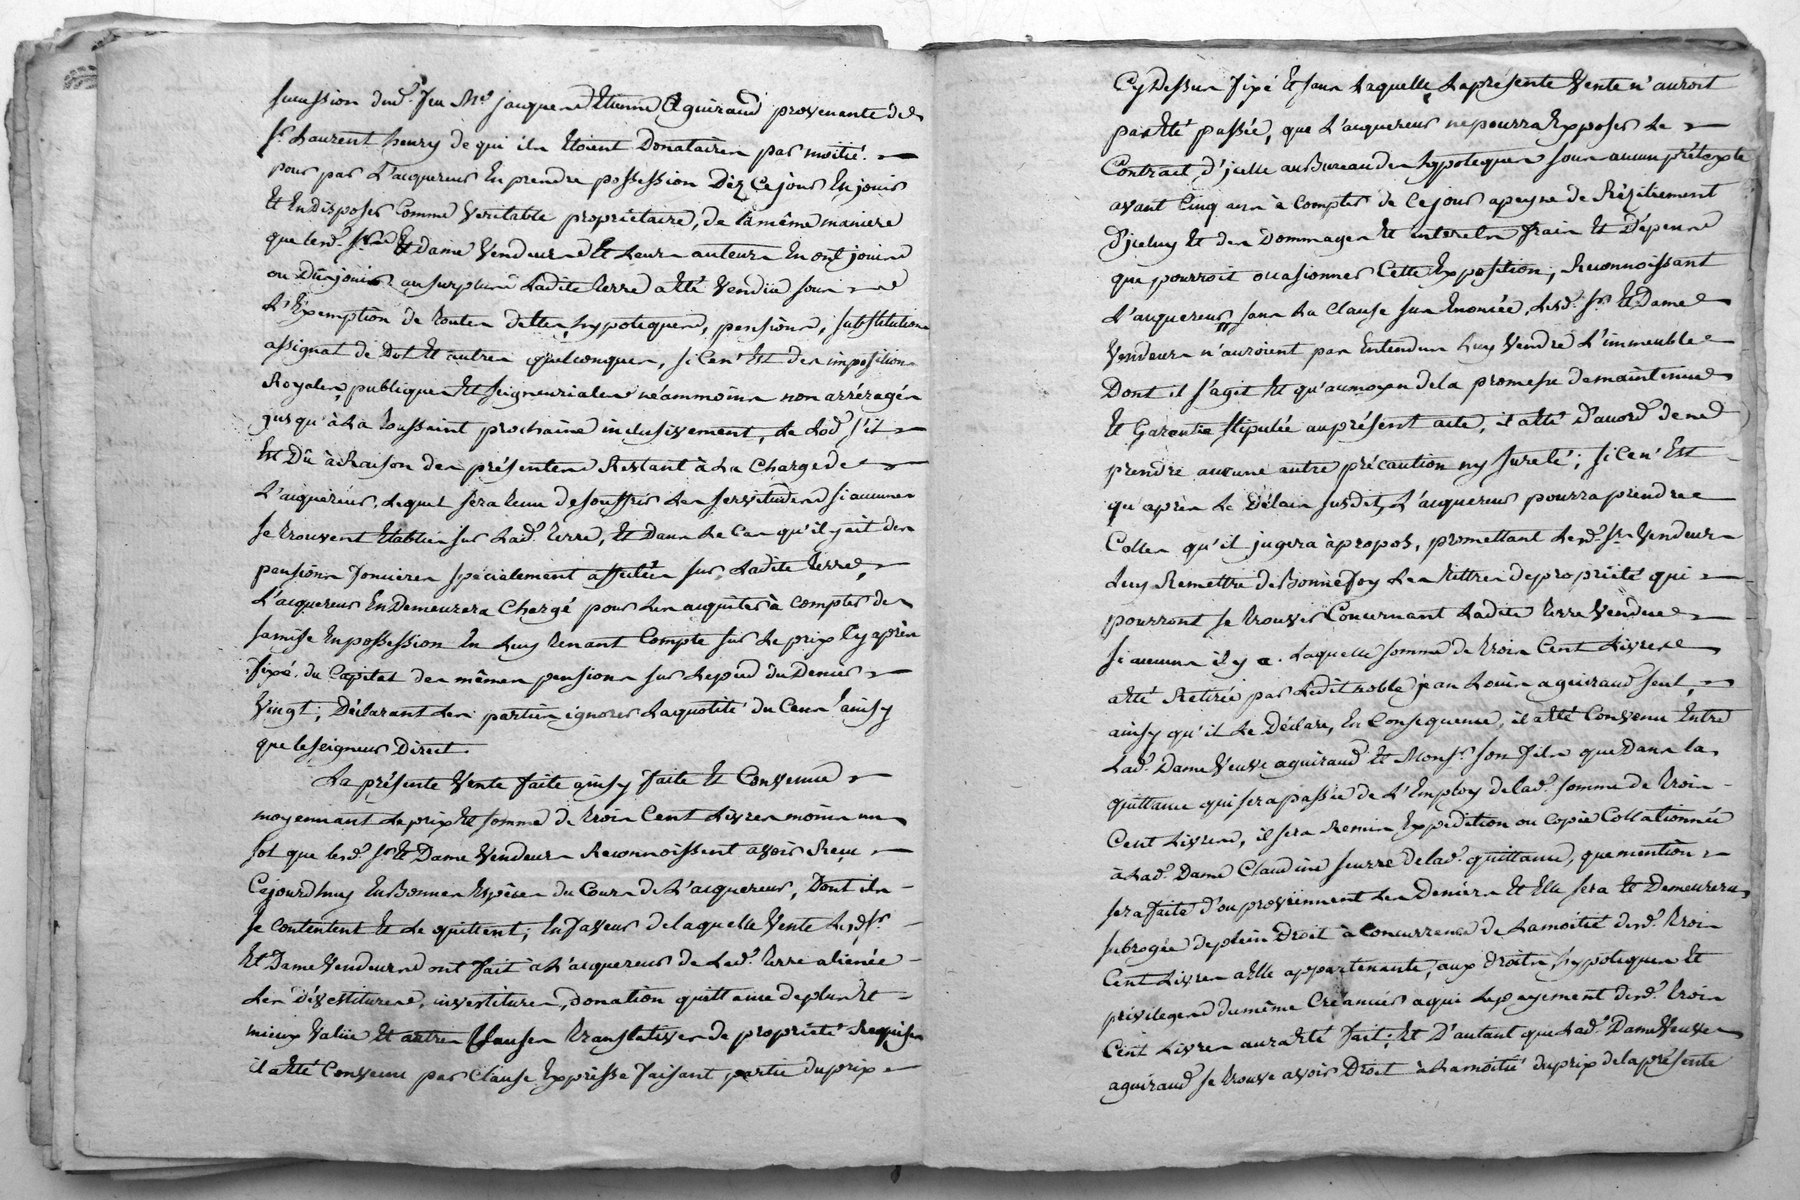 succession dud. feu Mre jacques Etienne Aguiraud provenante de
Sr. Laurent heury de qui ils Etoient Donataires par moitié.
pour par L'acquereur En prendre possession Dez Ce jour En jouir
Et En disposer Comme Veritable proprietaire, de la même maniere
que lesd. Srs Et Dame Vendeurs Et Leurs auteurs En ont jouis
ou Dû jouir au surplus Ladite terre a Eté Vendüe sous
L'Exemption de toutes dettes, hypoteques, pensions, substitutions
assignat de Dot Et autres quelconques, si Ce n'Est des impositions
Royales, publiques Et seigneuriales néammoins non arréragées
jusqu'à La toussaint prochaine inclusivement, Le Lod s'il
Est Dû à Raison des présentes Restant à La Charge de
L'acquereur, Lequel sera tenu de souffrir Les servitudes si aucunes
se trouvent Etablies sur Lad. terre, Et Dans Le Cas qu'il y ait des
pensions foncieres spécialement affectées sur Ladite terre,
L'acquereur En Demeurera Chargé pour Les acquiter à compter de
sa mise En possession En Luy tenant Compte sur Le prix Cy après
fixé du Capital des mêmes pensions sur Le pied du Denier
Vingt; Déclarant Les parties ignorer La quotité du Cens ainsy
que le seigneur Direct.
La présente Vente faite ainsy faite Et Convenüe
moyennant Le prix Et somme de trois Cent Livres moins un
sol que lesd. Srs Et Dame Vendeurs Reconnoissent avoir Reçu
Cejourd'huy En Bonnes Espèces du Cours de L'acquereur, Dont ils
se contentent Et Le quittent; En faveur de laquelle Vente Lesd. Srs
Et Dame Vendeurs ont fait a L'acquereur de Lad. terre aliénée
Les dévestitures, investitures, donation quittance de plus Et
mieux Value Et autres Clauses translatives de propriété Requises
il a Eté Convenu par Clause Expresse faisant partie du prix
Cy Dessus fixé Et sans Laquelle La présente Vente n'auroit
pas Eté passée, que L'acquereur ne pourra Exposer Le
Contrat d'jcelle au Bureau des hypoteques sous aucun prétexte
avant Cinq ans à compter de Ce jour a peyne de Réziliement
D'jceluy Et des Dommages Et interets frais Et Dépens
que pourroit occasionner Cette Exposition, Reconnoissant
L'acquereur, sans La Clause sus Enoncée, Lesd. Srs Et Dame
Vendeurs n'auroient pas Entendus Luy Vendre L'immeuble
Dont il s'agit Et qu'au moyen de la promesse de maintenue
Et Garentie stipulée au présent acte, il a Eté D'acord de ne
prendre aucune autre précaution ny sureté; si Ce n'Est
qu'après Le Délais susdit, L'acquereur pourra prendre
Celles qu'il jugera à propos, promettant Lesd. Srs Vendeurs
Luy Remettre de Bonne foy Les titres de propriété qui
pourront se trouver Concernant Ladite terre Vendue
si aucuns il y a. Laquelle somme de trois Cent Livres
a Eté Retirée par Ledit noble jean Louis aguiraud seul,
ainsy qu'il Le Déclare, En Consequence, il a Eté Convenu Entre
Lad. Dame Veuve aguiraud Et Monsr. son fils que Dans la
quittance qui sera passée de L'Employ de lad. somme de trois
Cent Livres, il sera Remis Expedition ou Copie Collationnée
à Lad. Dame Claudine seurre de lad. quittance, que mention
sera faite d'ou proviennent Les Deniers Et Elle sera Et Demeurera
subrogée de plein Droit à Concurrence de La moitié desd. trois
Cent Livres a Elle appartenante, aux droits, hypoteques Et
privileges du même Créancier a qui Le payement desd. trois
Cent Livres aura Eté fait; Et D'autant que Lad. Dame Veuve
aguiraud se trouve avoir Droit à La moitié du prix de la présente